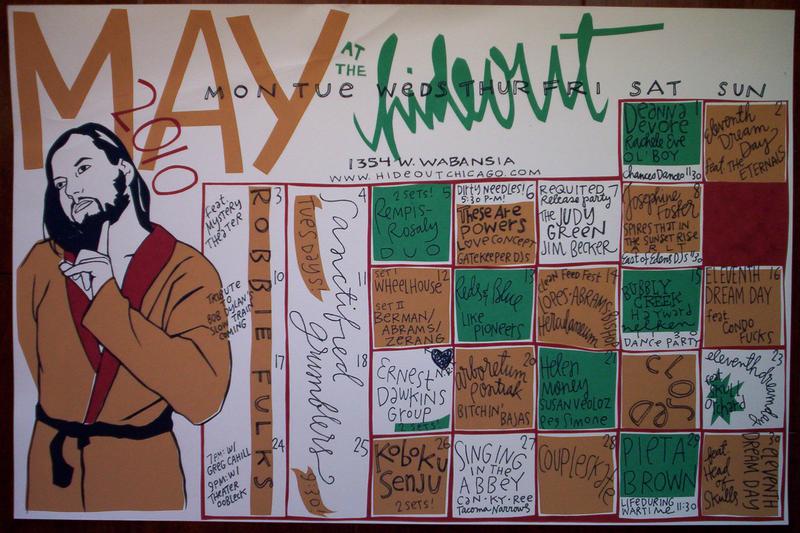 MAY
2010
AT
THE
hideout
MON TUE WEDS THUR FRI SAT SUN
1354 W. WABANSIA
WWW.HIDEOUTCHICAGO.COM
1
Deanna
Devore
Rachele Eve
OL' BOY
Chances Dances 11:30
2
Eleventh
Dream
Day
feat. THE
ETERNALS
3
Feat.
Mystery
Theater
ROBBIE FULKS
10
TRIBUTE
TO
BOB DYLAN'S
SLOW TRAIN
COMING
17
24
7PM: W/
GREG CAHILL
9PM: W/
THEATER
OOBLECK
4
TUESDAYS
Sanctified
grumblers
11
18
25
9:30!
2 SETS! 5
REMPIS-
ROSALY
DUO
DIRTY NEEDLES! 6
5:30 P.M!
These ARE
POWERS
LOVE CONCEPT
GATEKEEPER DJS
REQUITED 7
Release party
THE JUDY
GREEN
JIM BECKER
8
Josephine
Foster
SPIRES THAT IN
THE SUNSET RISE
East of Edens DJS
SET I
WHEELHOUSE
SET II
BERMAN/
ABRAMS/
ZERANG
13
Reds & Blue
LIKE
PIONEERS
clean Feed Fest 14
LOPES-ABRAMS
Herculaneum
15
BUBBLY
CREEK
Hayward
DANCE PARTY
ELEVENTH 16
DREAM DAY
feat
CONDO
FUCKS
ERNEST
DAWKINS
GROUP
2 SETS!
20
arboretum
Pontiak
BITCHIN' BAJAS
21
Helen
Money
SUSAN VOELZ
Peg Simone
CLOSED
23
eleventh dream day
26
KOBOKU
SENJU
2 SETS!
27
SINGING
IN THE
ABBEY
CAN.KY.REE
Tacoma Narrows
28
COUPLESKATE
29
PIETA
BROWN
LIFE DURING
WARTIME 11:30
30
ELEVENTH
DREAM DAY
feat.
Head
of
Skulls